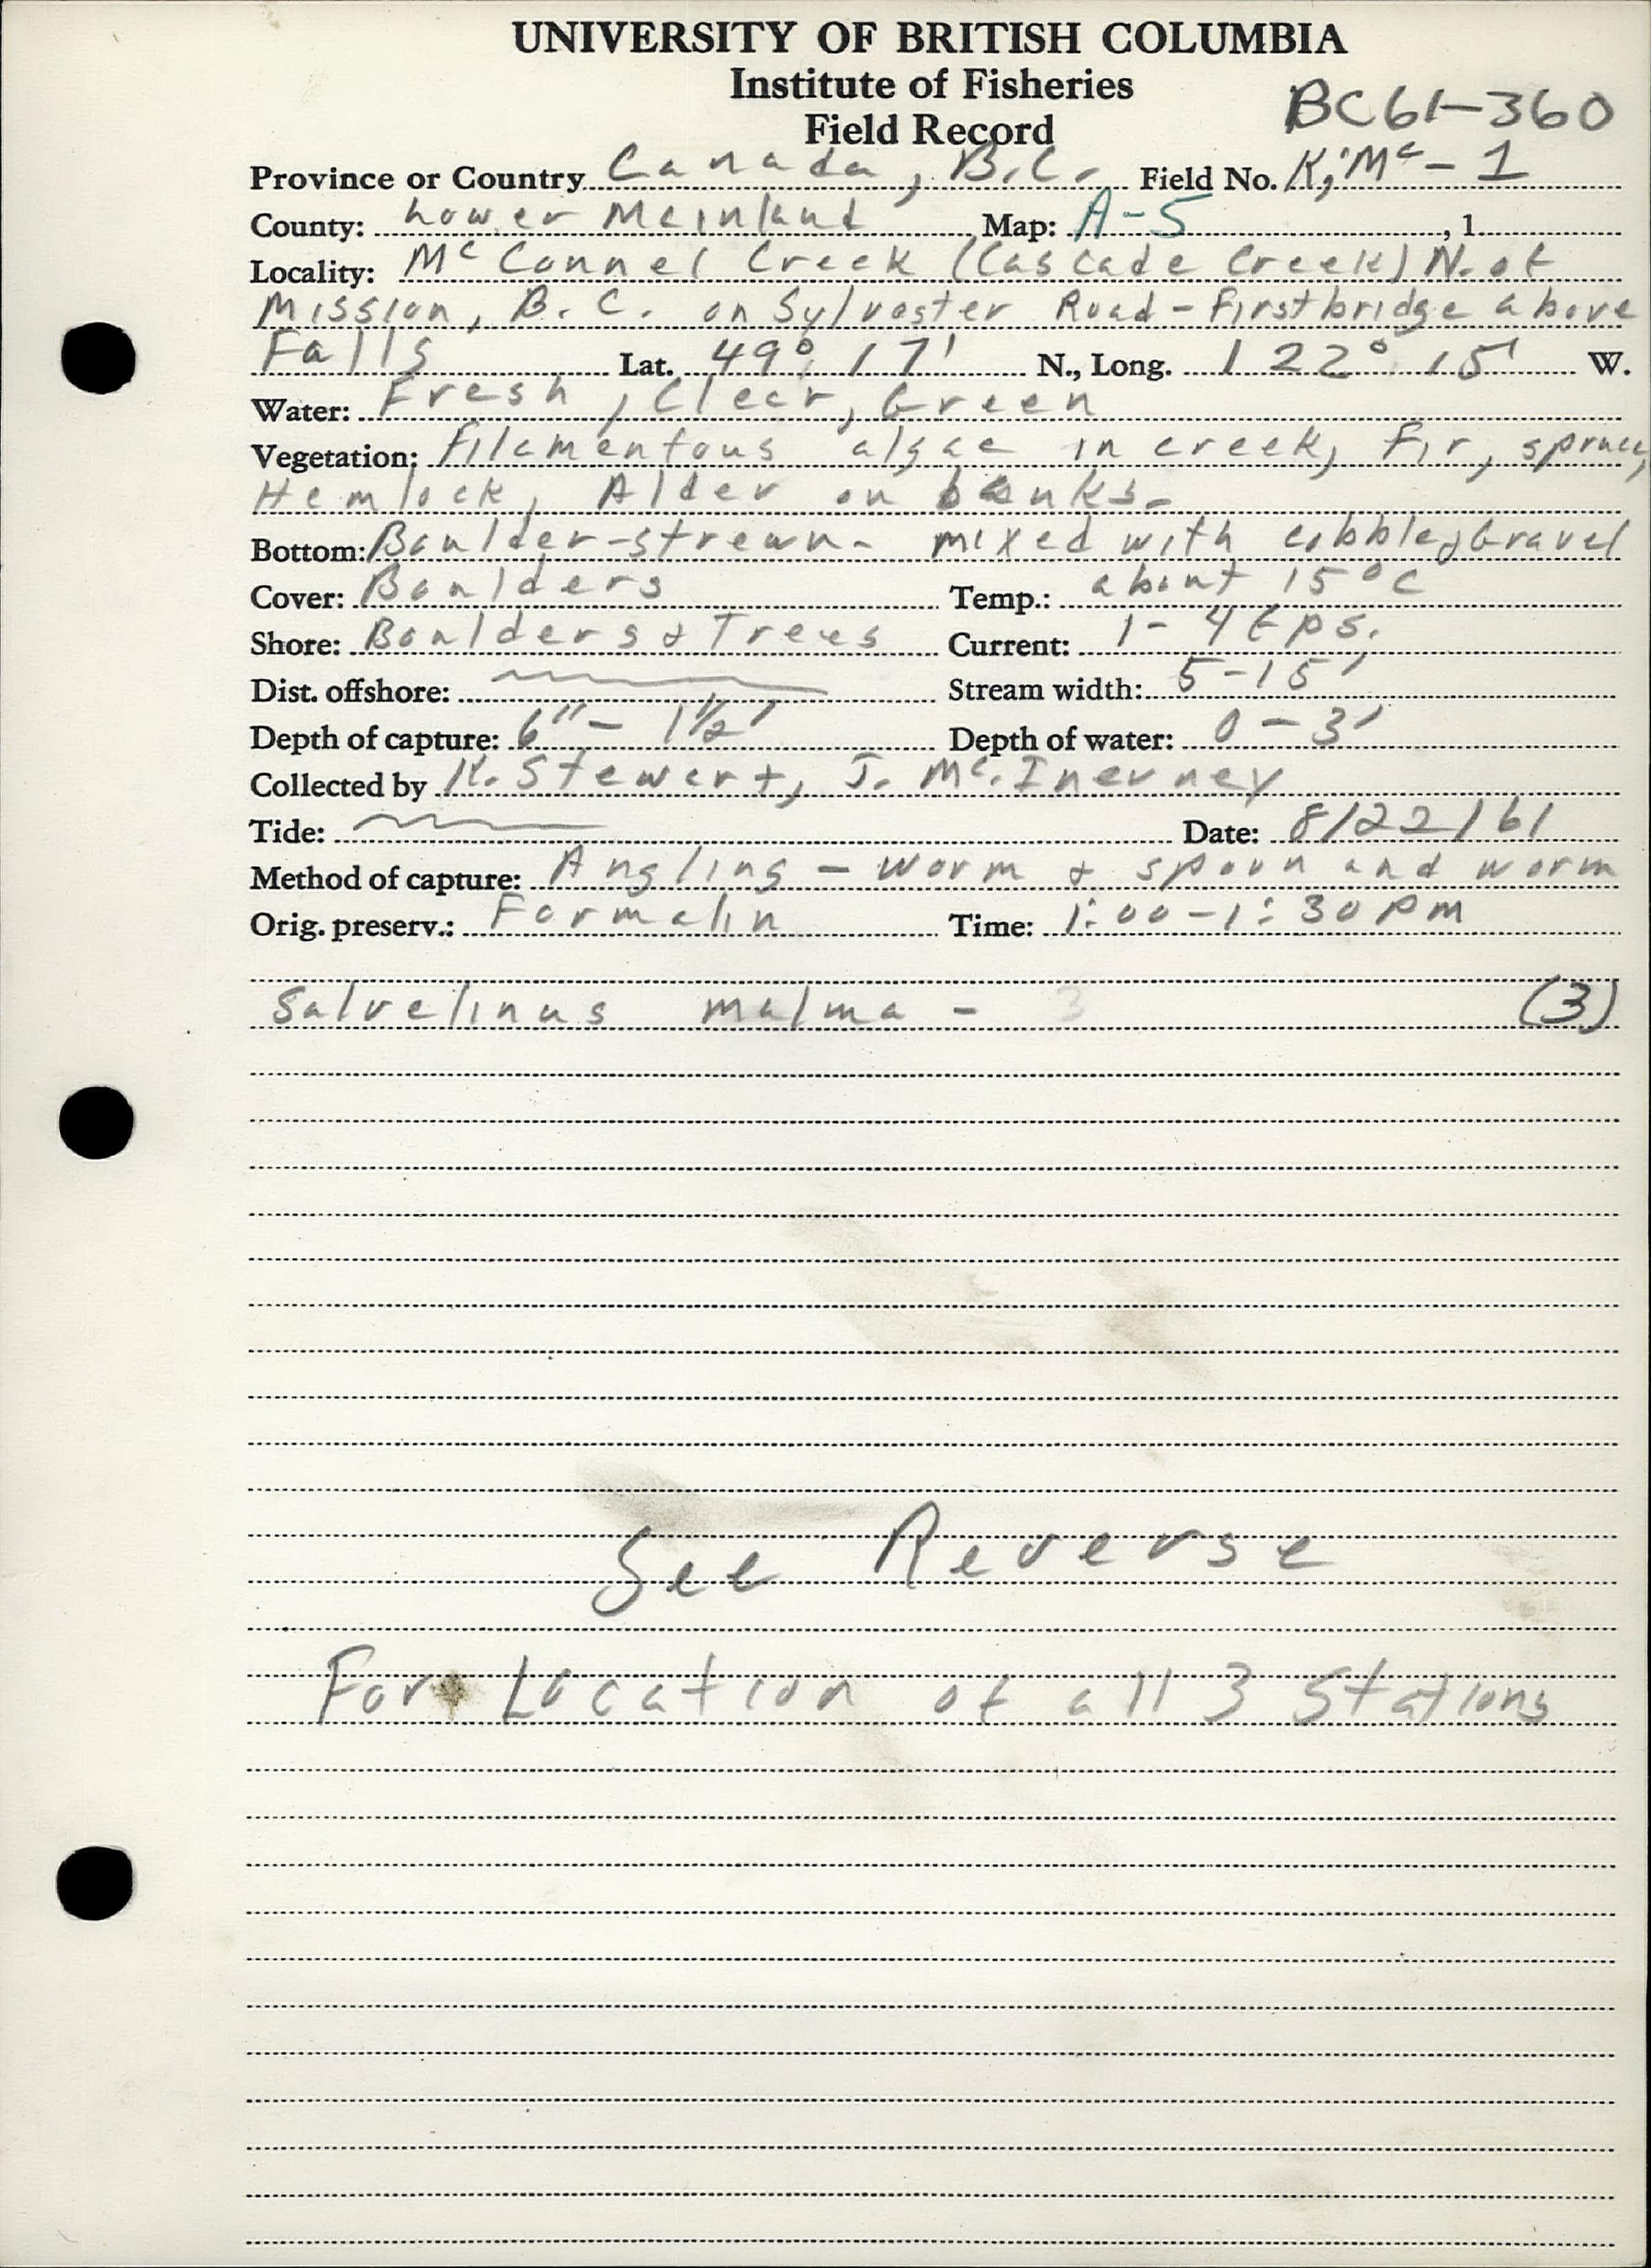 UNIVERSITY OF BRITISH COLUMBIA
Institute of Fisheries
BC61-360
Field Record
Province or Country Canada, B.C. Field No. K;Mc-1
County: Lower Mainland Map: A-5 , 1
Locality: Mc Connel Creek (Cascade Creek) N. of
Mission, B.C. on Sylvester Road - First bridge above
Falls Lat. 49° 17' N., Long. 122° 15' W.
Water: Fresh, Clear, Green
Vegetation: Filamentous algae in creek, Fir, spruce,
Hemlock, Alder on banks.
Bottom: Boulder-strewn - mixed with cobble, Gravel
Cover: Boulders Temp.: about 15°C
Shore: Boulders & Trees Current: 1-4 fps.
Dist. offshore: Stream width: 5-15'
Depth of capture: 6" - 1½' Depth of water: 0 - 3'
Collected by K. Stewart, J. Mc.Inerney
Tide: Date: 8/22/61
Method of capture: Angling - worm & spoon and worm
Orig. preserv.: Formalin Time: 1:00-1:30 PM
Salvelinus malma - 3 (3)
See Reverse
For Location of all 3 Stations